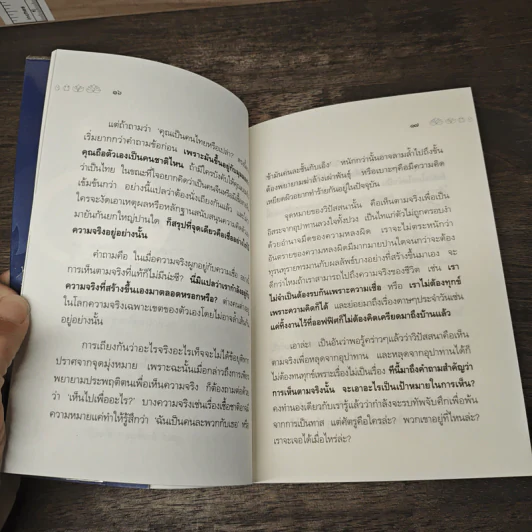 ๑๖
แต่ถ้าถามว่า 'คุณเป็นคนไทยหรือเปล่า?'
เริ่มยากกว่าคำถามข้อก่อน เพราะมันขึ้นอยู่กับ
คุณถือตัวเองเป็นคนชาติไหน ถ้ามีใครบังคับให้คุณ
ว่าเป็นไทย ในขณะที่ใจอยากคิดว่าเป็นคนจีน
เข้มข้นกว่า อย่างนี้แปลว่าต้องนั่งเถียงกันแล้ว และ
ใครจะงัดเอาเหตุผลหรือหลักฐานสนับสนุนความคิด
มายันกันยกใหญ่ปานใด ก็สรุปที่จุดเดียวคือเชื่อ
ความจริงอยู่อย่างนั้น
คำถามคือ ในเมื่อความจริงผูกอยู่กับความเชื่อ
การเห็นตามจริงที่แท้ก็ไม่มีน่ะซี? นี่มิแปลว่าเรากำลังอยู่กับ
ความจริงที่สร้างขึ้นเองมาตลอดหรอกหรือ? ต่างคนต่างอยู่
ในโลกความจริงเฉพาะเขตของตัวเองโดยไม่อาจล้ำเส้น
อยู่อย่างนั้น
การเถียงกันว่าอะไรจริงอะไรเท็จจะไม่ได้ข้อยุติ
ปราศจากจุดมุ่งหมาย เพราะฉะนั้นเมื่อกล่าวถึงการ
พยายามประพฤติตนเพื่อเห็นความจริง ก็ต้องถามต่อด้วย
ว่า 'เห็นไปเพื่ออะไร?' บางความจริงเช่นเรื่องเชื้อชาติ
ความหมายแค่ทำให้รู้สึกว่า 'ฉันเป็นคนละพวกกับเธอ' หรือ
๑๗
'ข้ามันคนละชั้นกับเอ็ง' หนักกว่านั้นอาจลามล้ำไปถึงขั้น
ต้องพยายามฆ่าล้างเผ่าพันธุ์ หรือเบาะๆคือมีความคิด
เหยียดผิวอยากทำร้ายกันอยู่ในปัจจุบัน
จุดหมายของวิปัสสนานั้น คือเห็นตามจริงเพื่อเป็น
อิสระจากอุปาทานลวงใจทั้งปวง เป็นไทแก่ตัวไม่ถูกครอบงำ
ด้วยอำนาจมืดของความหลงผิด เราจะไม่ตระหนักว่า
อันตรายของความหลงผิดมีมากมายปานใดจนกว่าจะต้อง
ทุรนทุรายทรมานกับผลลัพธ์บางอย่างที่สร้างขึ้นมาเอง จะ
ดีกว่าไหมถ้าเราสามารถไปถึงความจริงของชีวิต เช่น เรา
ไม่จำเป็นต้องรบกันเพราะความเชื่อ หรือ เราไม่ต้องทุกข์
เพราะความคิดก็ได้ และย่อยมาถึงเรื่องดาษๆประจำวันเช่น
แค่ทิ้งงานไว้ที่ออฟฟิศก็ไม่ต้องคิดเครียดมาถึงบ้านแล้ว
เอาล่ะ เป็นอันว่าพอรู้คร่าวๆแล้วว่าวิปัสสนาคือเห็น
ตามจริงเพื่อหลุดจากอุปาทาน และหลุดจากอุปาทานได้ก็
ไม่ต้องทนทุกข์เพราะเรื่องไม่เป็นเรื่อง ทีนี้มาถึงคำถามสำคัญว่า
การเห็นตามจริงนั้น จะเอาอะไรเป็นเป้าหมายในการเห็น?
คงทำนองเดียวกับเรารู้แล้วว่ากำลังจะรบทัพจับศึกเพื่อพ้น
จากการเป็นทาส แต่ศัตรูคือใครล่ะ? พวกเขาอยู่ที่ไหนล่ะ?
เราจะเจอได้เมื่อไหร่ล่ะ?